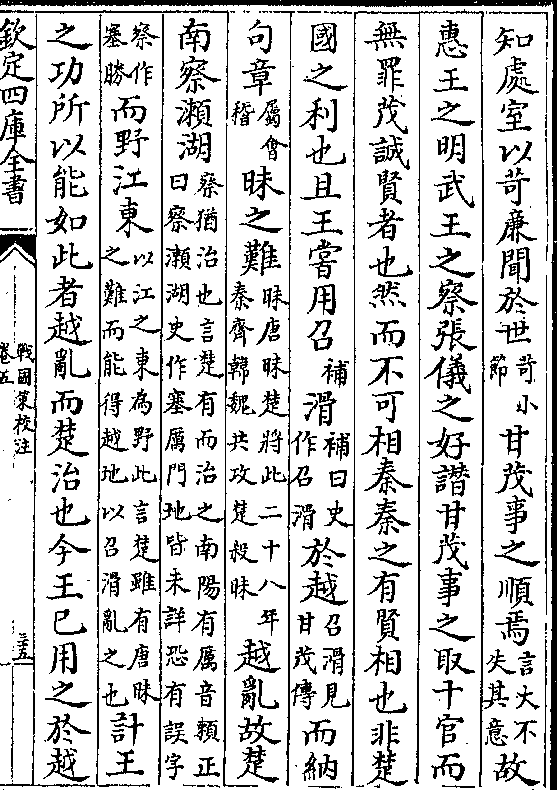 知處室以苛廉聞於世苛小節甘茂事之順焉言大不失其意故
惠王之明武王之察張儀之好譖甘茂事之取十官而
無罪茂誠賢者也然而不可相秦秦之有賢相也非楚
國之利也且王嘗用召補滑補曰史作召滑於越召滑見甘茂傳而納
句章屬會稽昧之難昧唐昧楚將此二十八年秦齊韓魏共攻楚殺昧越亂故楚
南察瀬湖察猶治也言楚有而治之南陽有厲音賴正曰察瀬湖史作塞厲門地皆未詳恐有誤字
察作塞勝而野江東以江之東為野此言楚雖有唐昧之難而能得越地以召滑亂之也計王
之功所以能如此者越亂而楚治也今王已用之於越
欽定四庫全書
戰國策校注
卷五
三五